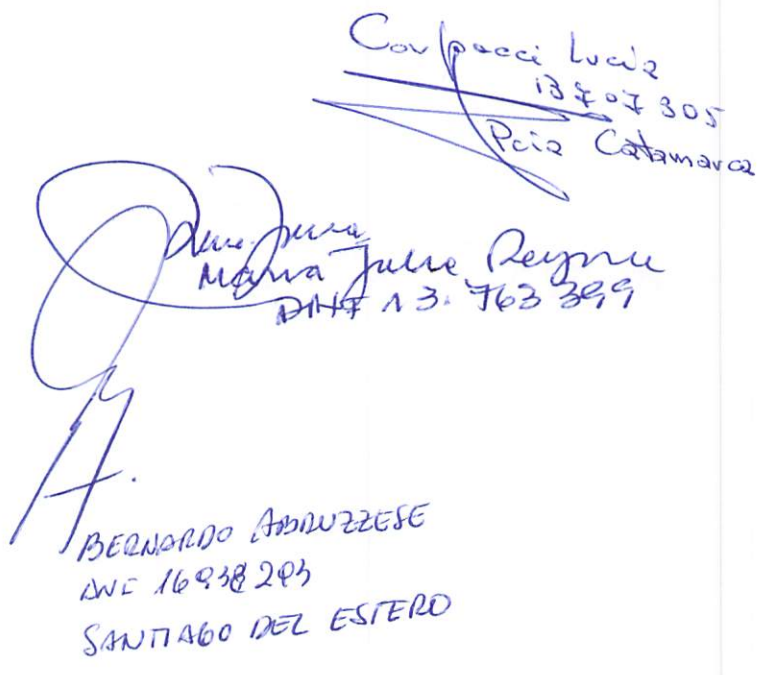 Corpacci Lucia
13707305
Pcia Catamarca
Maria Julia Reynu
DNI 13.763399
BERNARDO ABRUZZESE
DNI 16938293
SANTIAGO DEL ESTERO